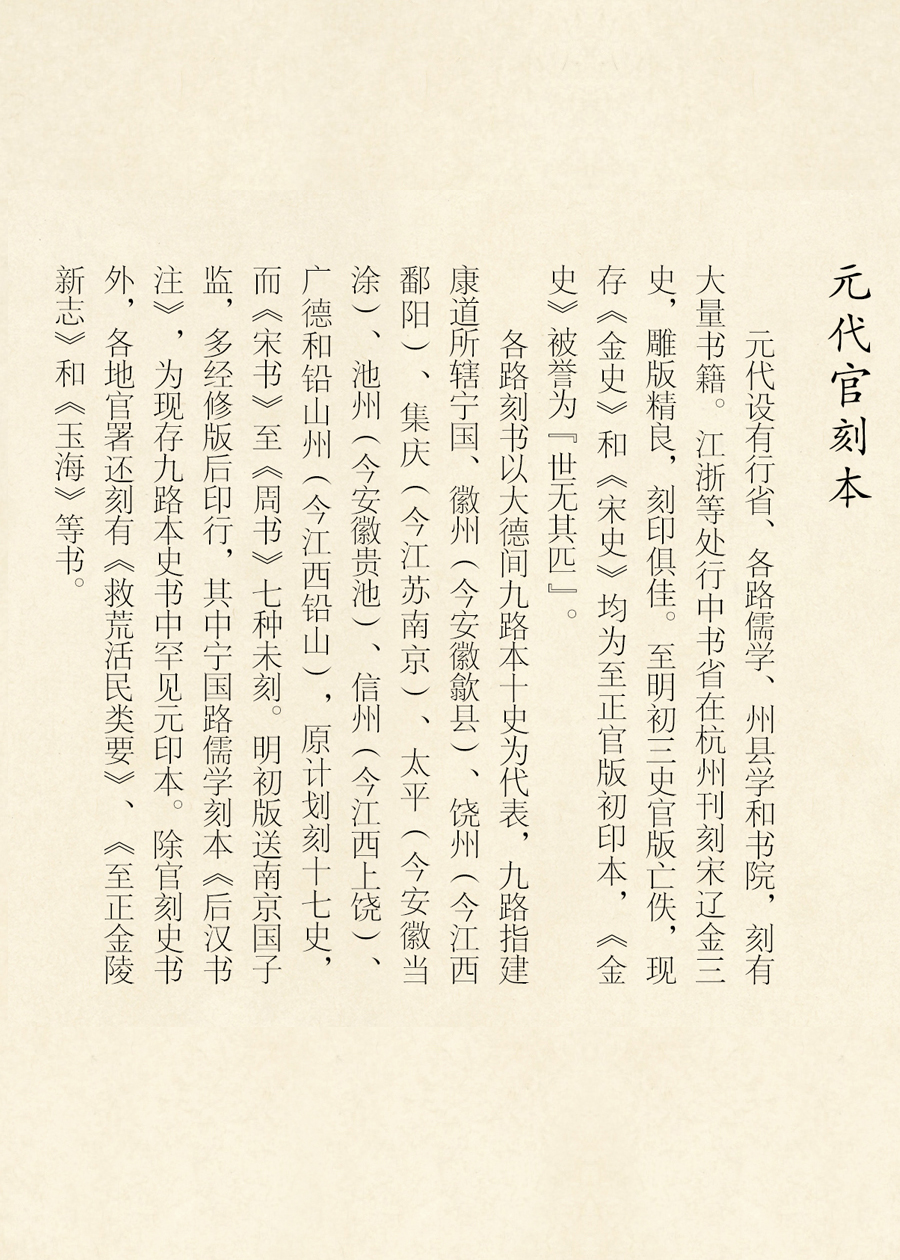 元代官刻本
元代设有行省、各路儒学、州县学和书院，刻有
大量书籍。江浙等处行中书省在杭州刊刻宋辽金三
史，雕版精良，刻印俱佳。至明初三史官版亡佚，现
存《金史》和《宋史》均为至正官版初印本，《金
史》被誉为『世无其匹』。
各路刻书以大德间九路本十史为代表，九路指建
康道所辖宁国、徽州（今安徽歙县）、饶州（今江西
鄱阳）、集庆（今江苏南京）、太平（今安徽当
涂）、池州（今安徽贵池）、信州（今江西上饶）、
广德和铅山州（今江西铅山），原计划刻十七史，
而《宋书》至《周书》七种未刻。明初版送南京国子
监，多经修版后印行，其中宁国路儒学刻本《后汉书
注》，为现存九路本史书中罕见元印本。除官刻史书
外，各地官署还刻有《救荒活民类要》、《至正金陵
新志》和《玉海》等书。